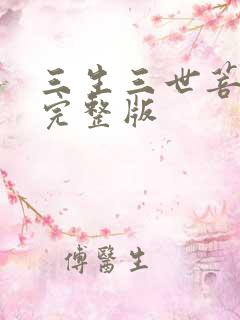 三生三世菩
完整版
傅醫生